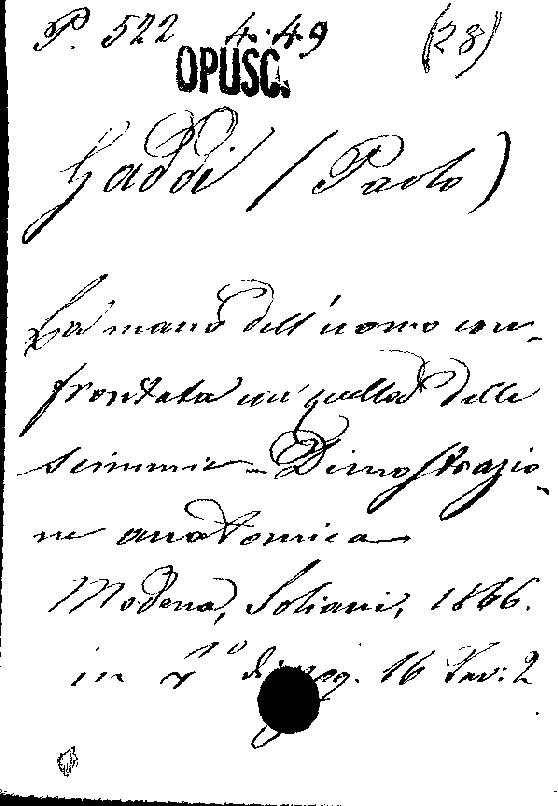 P. 522 4.49 (28)
OPUSC.
Gaddi (Paolo)
La mano dell'uomo con-
frontata con quella delle
scimmie - Dimostrazio-
ne anatomica
Modena, Soliani, 1866.
in 4° di pag. 16 Tav: 2